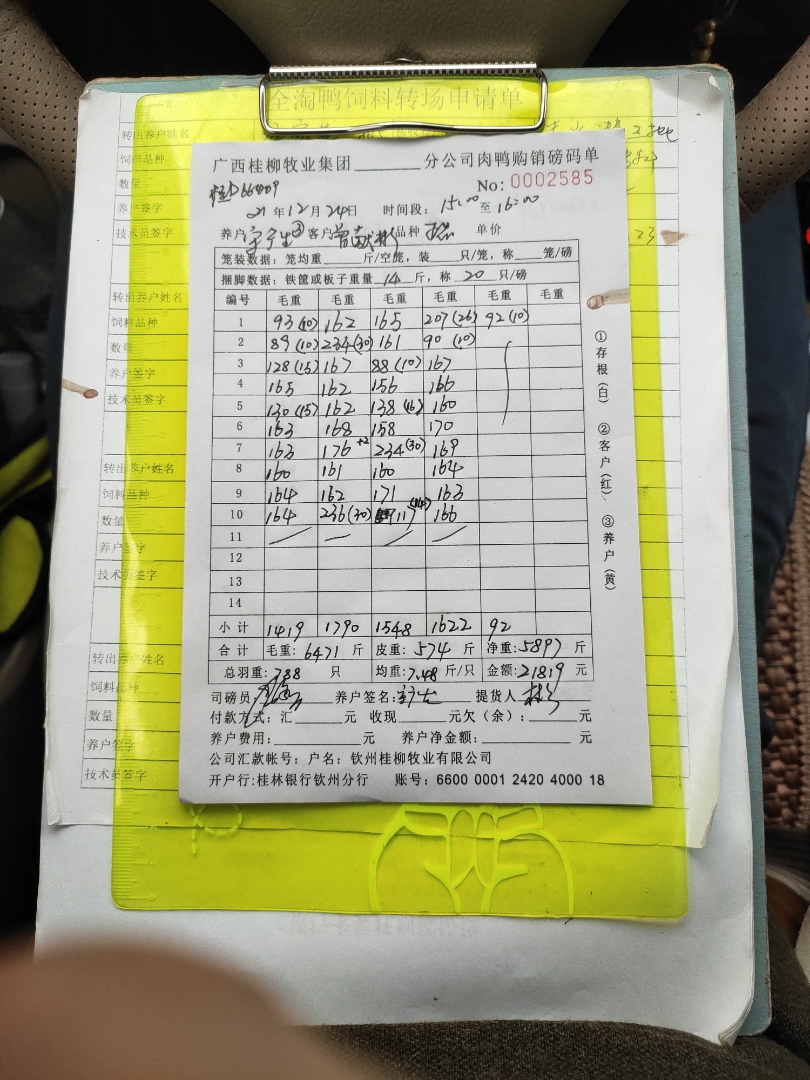 全淘鸭饲料转场申请单
转出养户姓名
饲料品种
数量
养户签字
技术员签字
转出养户姓名
饲料品种
数量
养户签字
技术员签字
转出养户姓名
饲料品种
数量
养户签字
技术员签字
转出养户姓名
饲料品种
数量
养户签字
技术员签字
广西桂柳牧业集团 分公司肉鸭购销磅码单
No: 0002585
21年12月24日 时间段: 15:00至16:00
养户 客户 品种 单价
笼装数据: 笼均重 斤/空笼, 装 只/笼, 称 笼/磅
捆脚数据: 铁筐或板子重量 14 斤, 称 20 只/磅
编号 毛重 毛重 毛重 毛重 毛重 毛重
1 93(10) 162 165 207(26) 92(10)
2 89(10) 234(30) 161 90(10)
3 128(15) 167 88(10) 167
4 165 162 156 166
5 130(15) 162 138(16) 160
6 163 168 158 170
7 163 176+2 234(30) 169
8 160 161 160 164
9 164 162 171 163
10 164 236(30) 117(14) 166
11
12
13
14
小计 1419 1790 1548 1622 92
合计 毛重: 6471 斤 皮重: 574 斤 净重: 5897 斤
总羽重: 788 只 均重: 7.48 斤/只 金额: 21819 元
司磅员 养户签名: 提货人
付款方式: 汇 元 收现 元欠(余): 元
养户费用: 元 养户净金额: 元
公司汇款帐号: 户名: 钦州桂柳牧业有限公司
开户行:桂林银行钦州分行 账号: 6600 0001 2420 4000 18
①存根(白) ②客户(红) ③养户(黄)